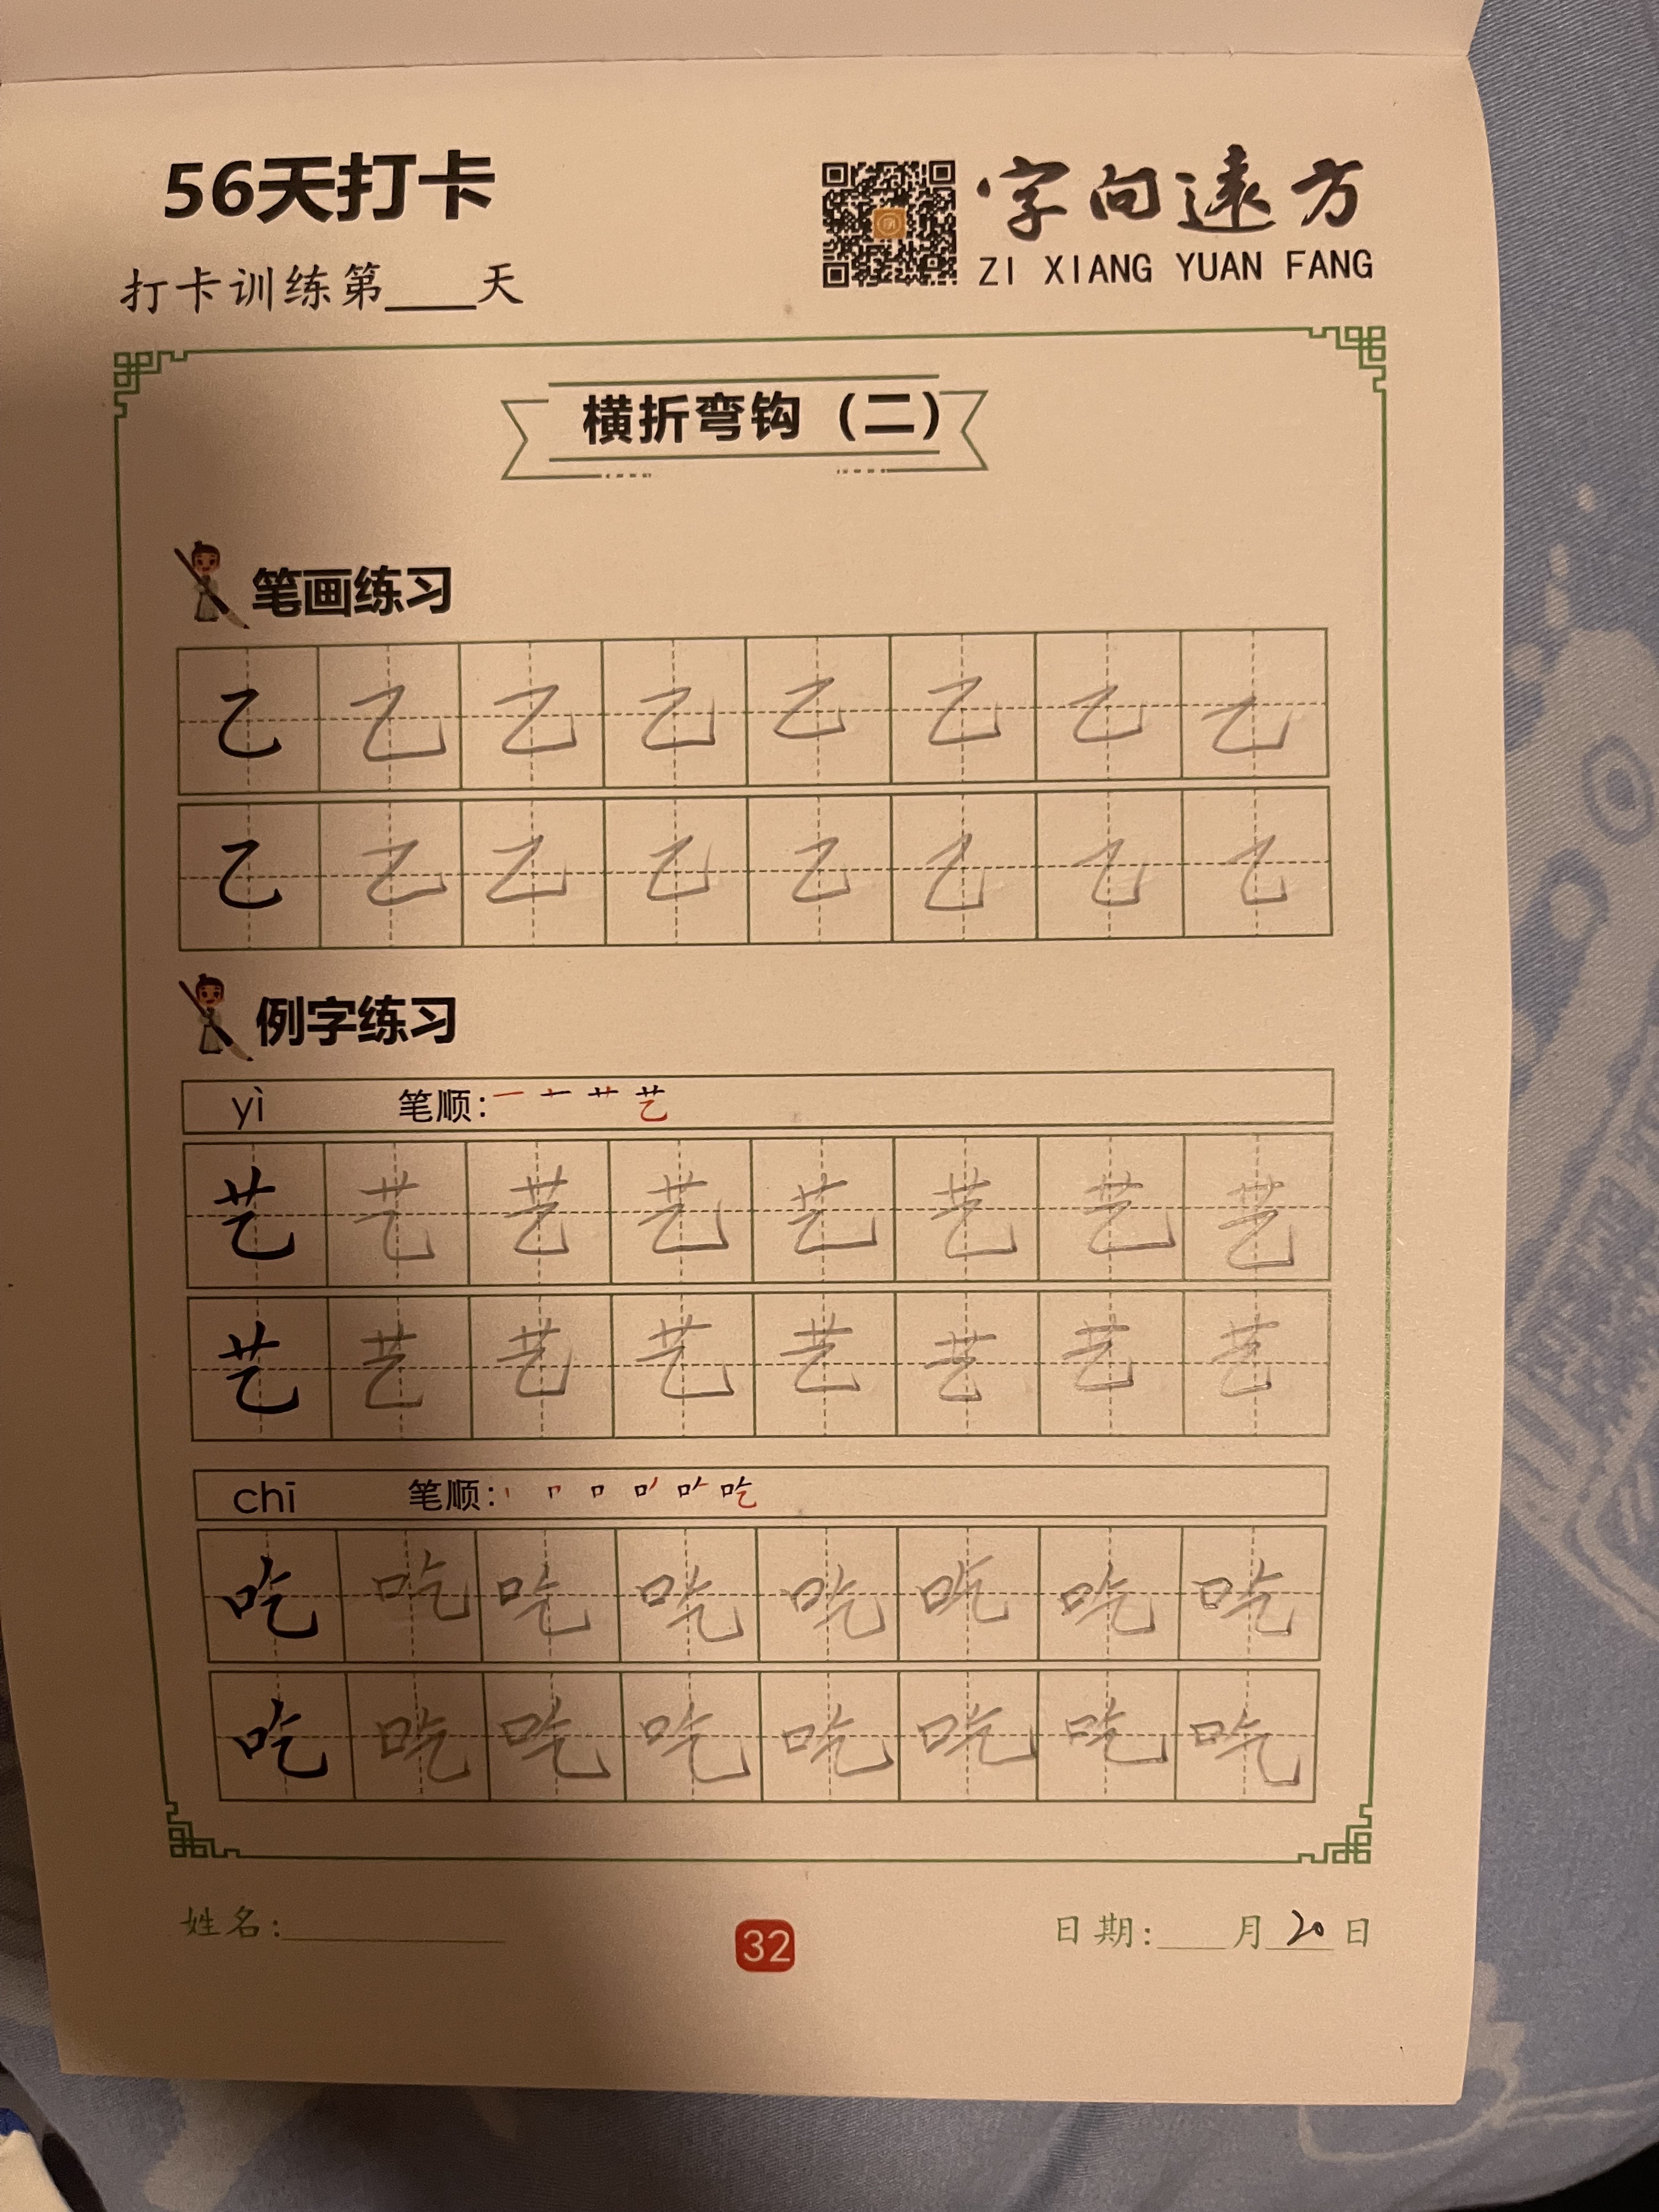 56天打卡
字向遠方
ZI XIANG YUAN FANG
打卡训练第____天
横折弯钩（二）
笔画练习
乙 乙 乙 乙 乙 乙 乙 乙
乙 乙 乙 乙 乙 乙 乙 乙
例字练习
yì 笔顺：一 十 艹 艺
艺 艺 艺 艺 艺 艺 艺 艺
艺 艺 艺 艺 艺 艺 艺 艺
chī 笔顺：丨 𠃍 口 口丿 口𠂉 吃
吃 吃 吃 吃 吃 吃 吃 吃
吃 吃 吃 吃 吃 吃 吃 吃
姓名：__________ 32 日期：____月 20 日